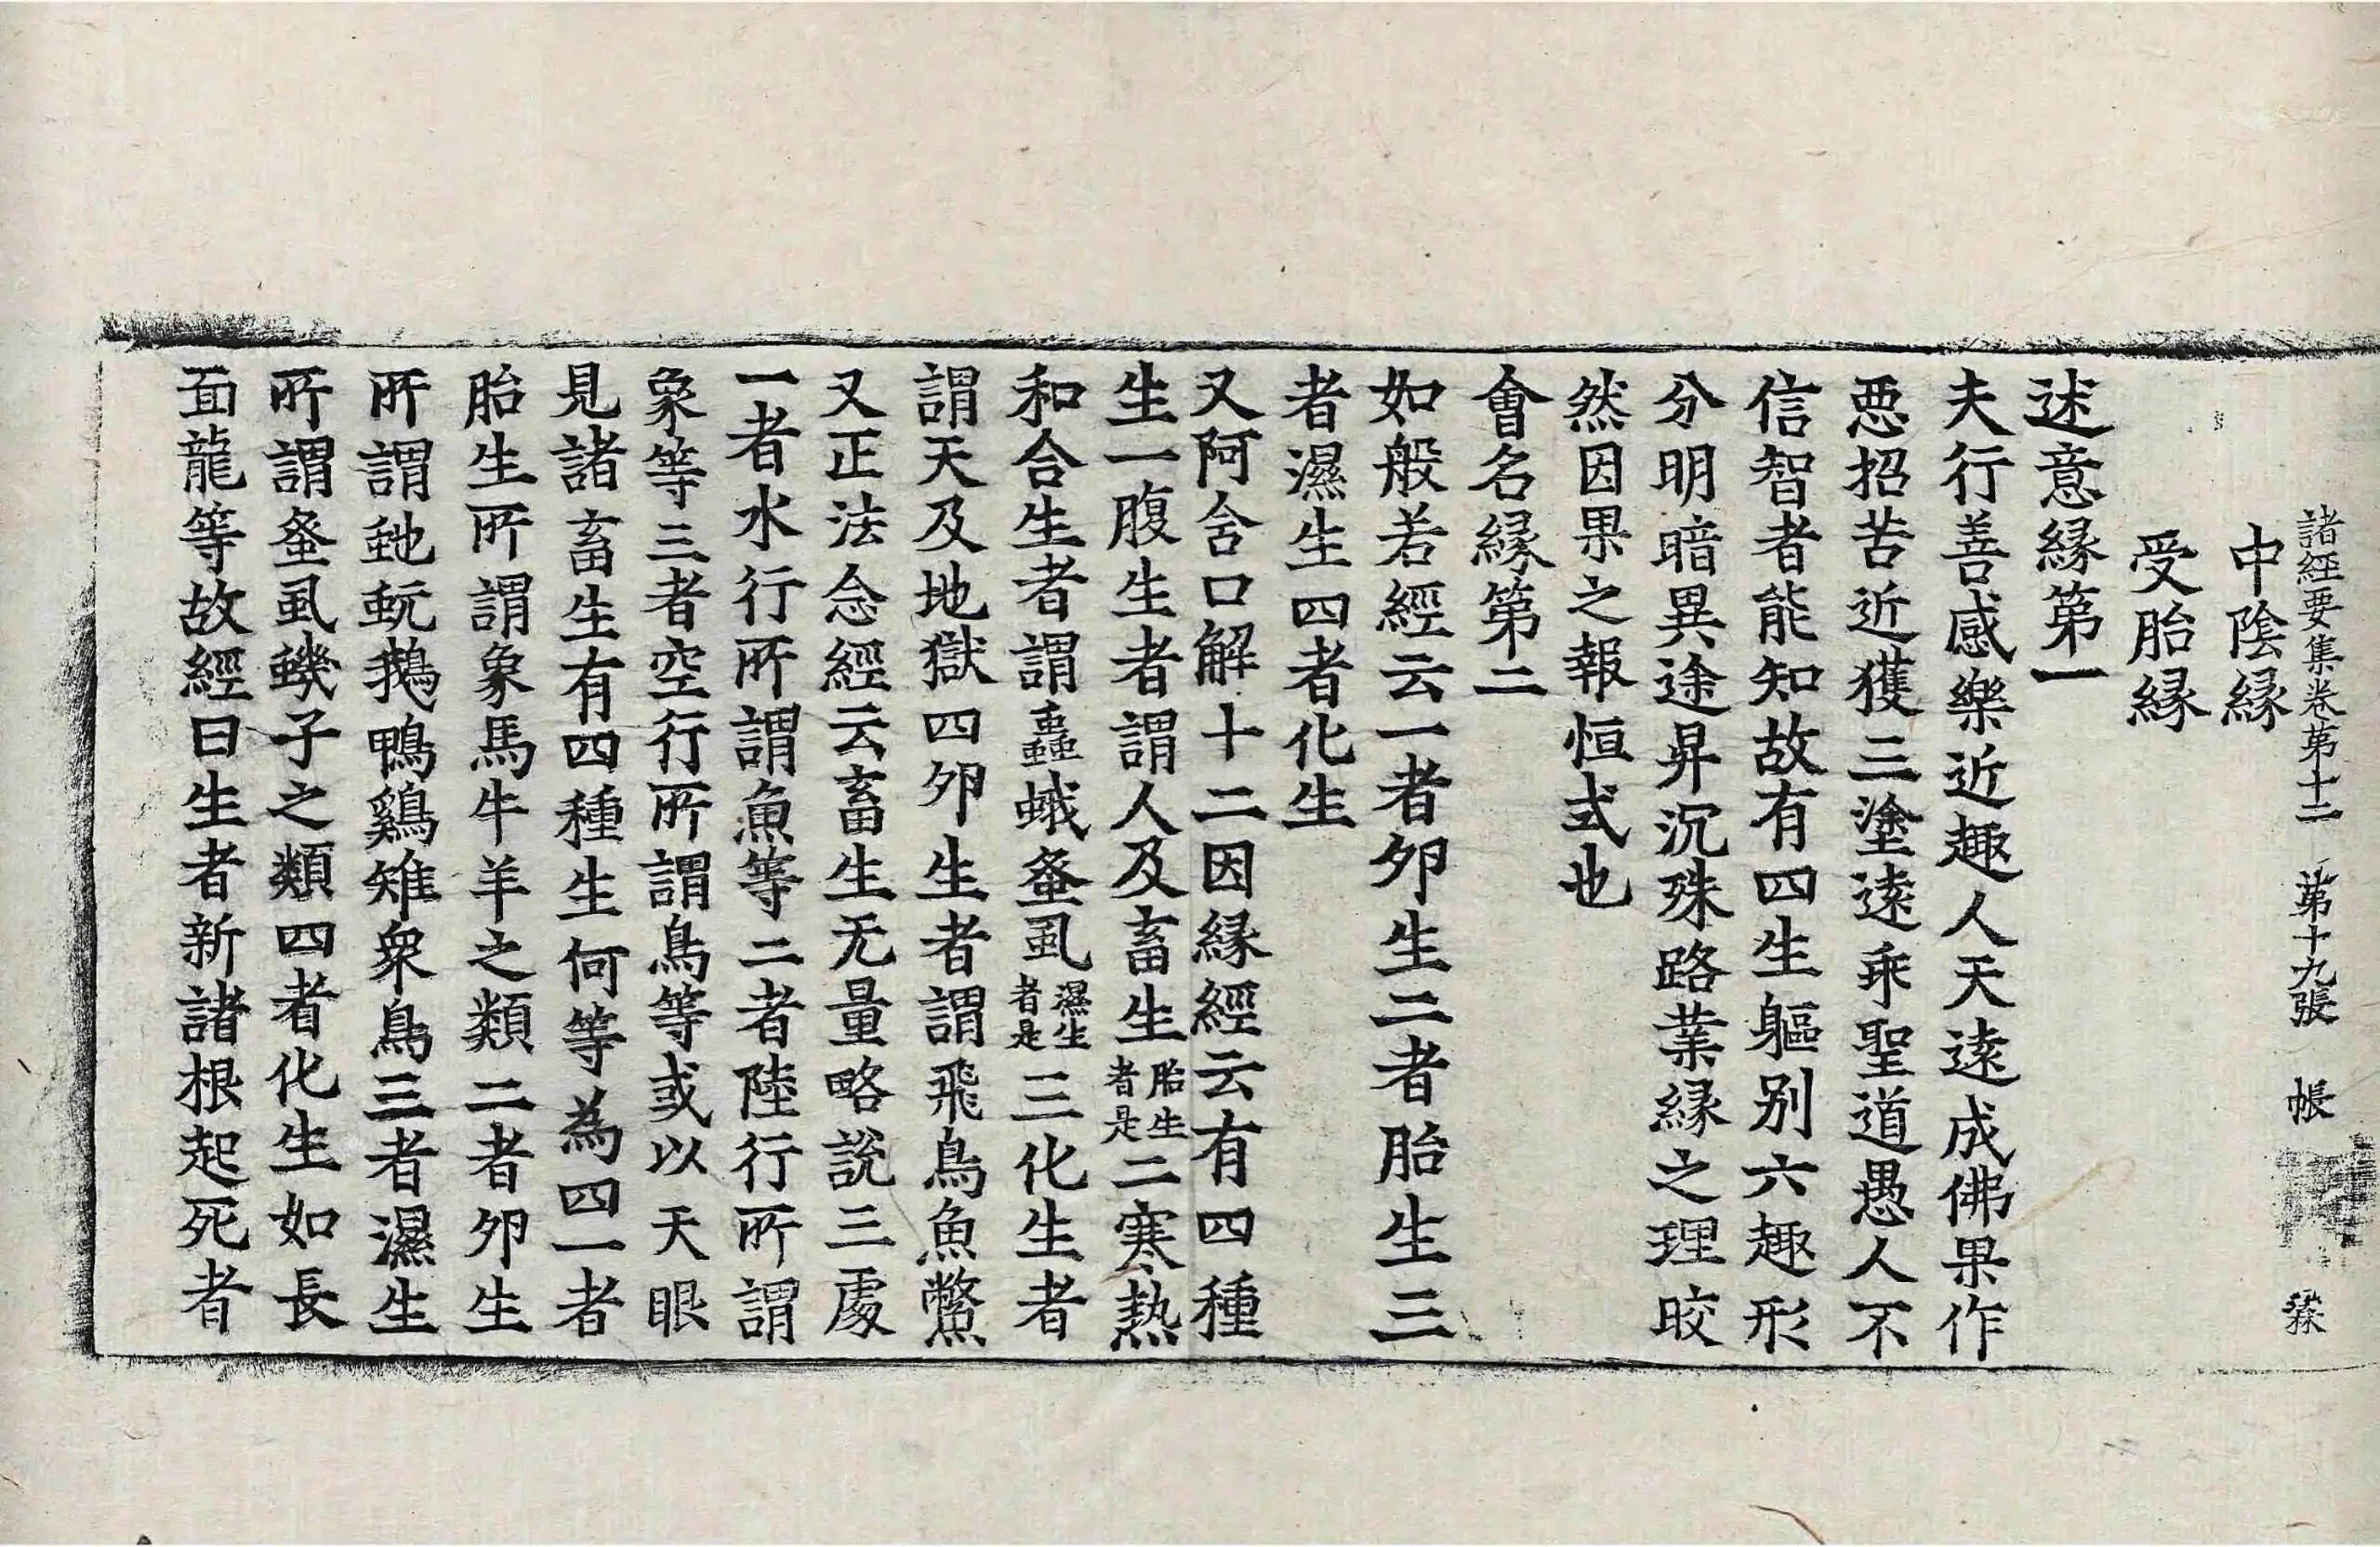 諸經要集卷第十二 第十九張 帳
中陰緣
受胎緣
述意緣第一
夫行善感樂近趣人天遠成佛果作
惡招苦近獲三塗遠乖聖道愚人不
信智者能知故有四生軀別六趣形
分明暗異途昇沉殊路業緣之理皎
然因果之報恒式也
會名緣第二
如般若經云一者夘生二者胎生三
者濕生四者化生
又阿含口解十二因緣經云有四種
生一腹生者謂人及畜生胎生者是二寒熱
和合生者謂蟲蛾蚤虱濕生者是三化生者
謂天及地獄四夘生者謂飛鳥魚鱉
又正法念經云畜生无量略說三處
一者水行所謂魚等二者陸行所謂
象等三者空行所謂鳥等或以天眼
見諸畜生有四種生何等為四一者
胎生所謂象馬牛羊之類二者夘生
所謂虵蚖鵝鴨鷄雉衆鳥三者濕生
所謂蚤虱蟣子之類四者化生如長
面龍等故經曰生者新諸根起死者